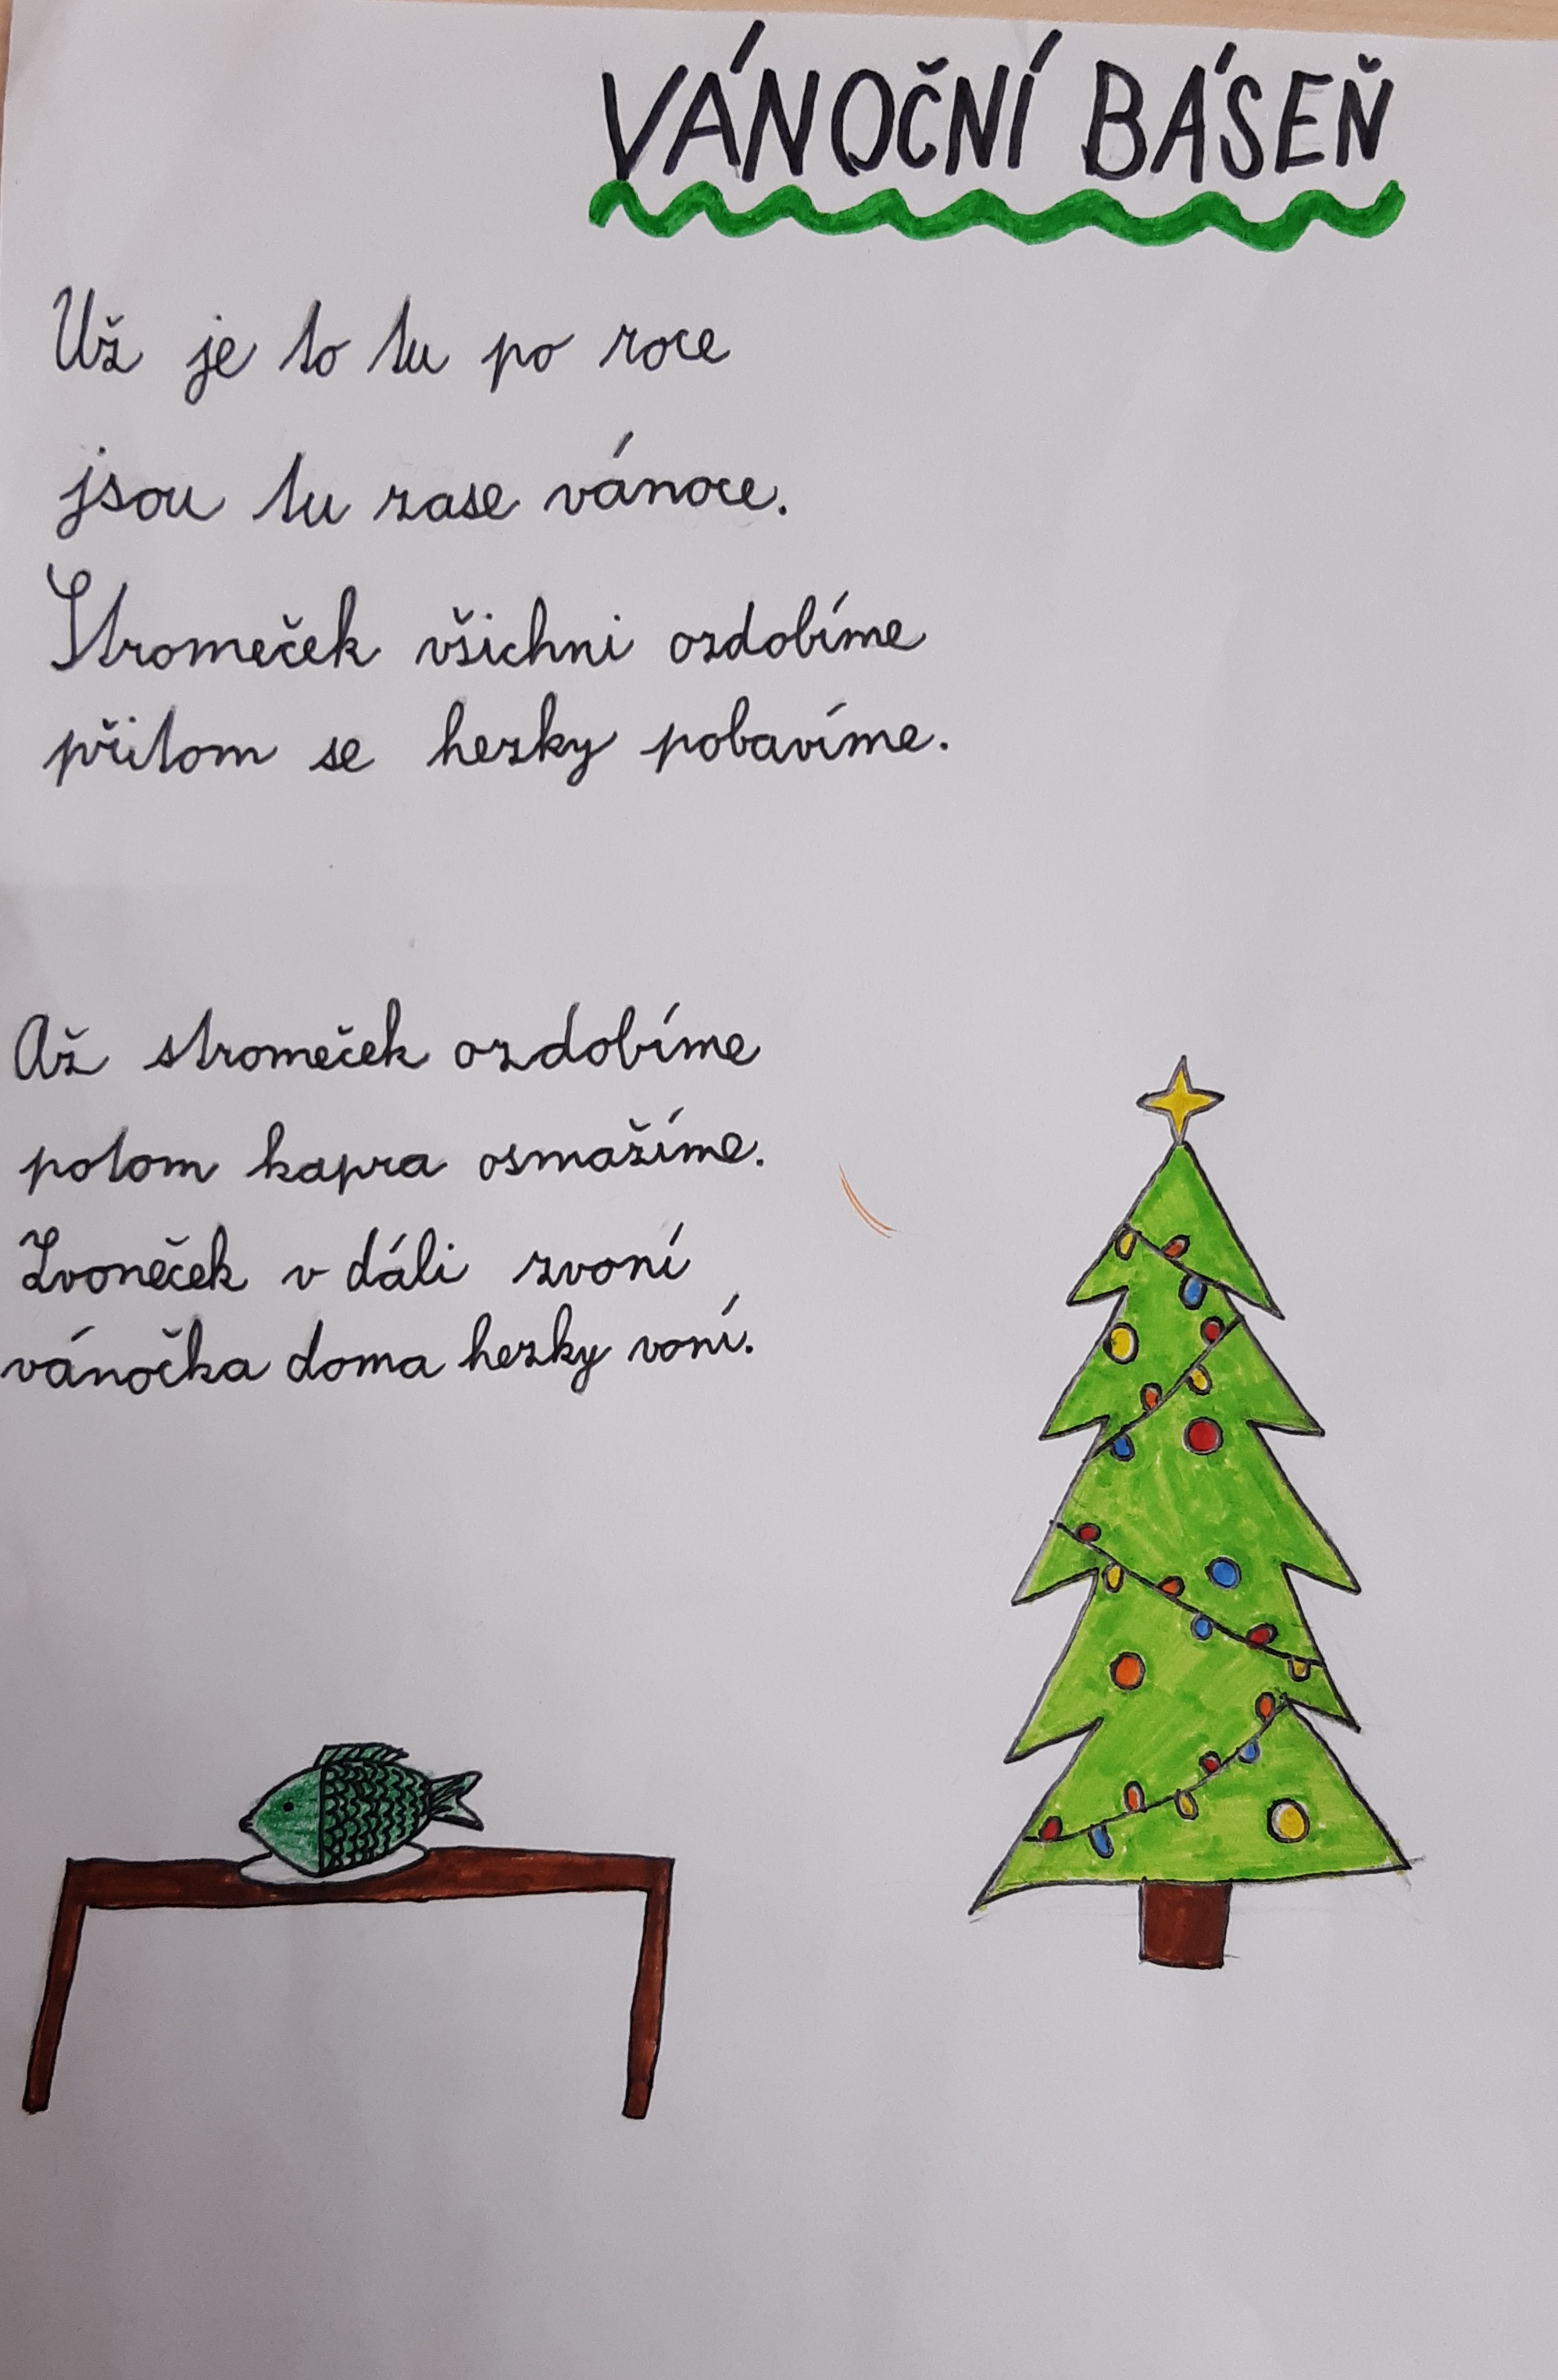 VÁNOČNÍ BÁSEŇ
Už je to tu po roce
jsou tu zase vánoce.
Stromeček všichni ozdobíme
přitom se hezky pobavíme.
Až stromeček ozdobíme
potom kapra osmažíme.
Zvoneček v dáli zvoní
vánočka doma hezky voní.